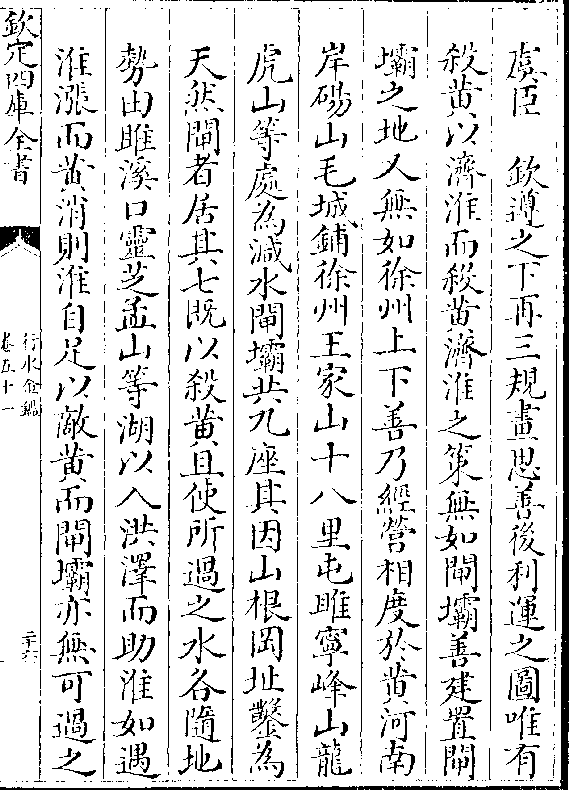 虞臣　欽遵之下再三規畫思善後利運之圖唯有
殺黄以濟淮而殺黄濟淮之策無如閘壩善建置閘
壩之地又無如徐州上下善乃經營相度於黄河南
岸碭山毛城鋪徐州王家山十八里屯睢寧峰山龍
虎山等處為減水閘壩共九座其因山根岡址鑿為
天然閘者居其七既以殺黄且使所過之水各隨地
勢由睢溪口靈芝孟山等湖以入洪澤而助淮如遇
淮漲而黄消則淮自足以敵黄而閘壩亦無可過之
欽定四庫全書
行水金鑑
卷五十一
二十六